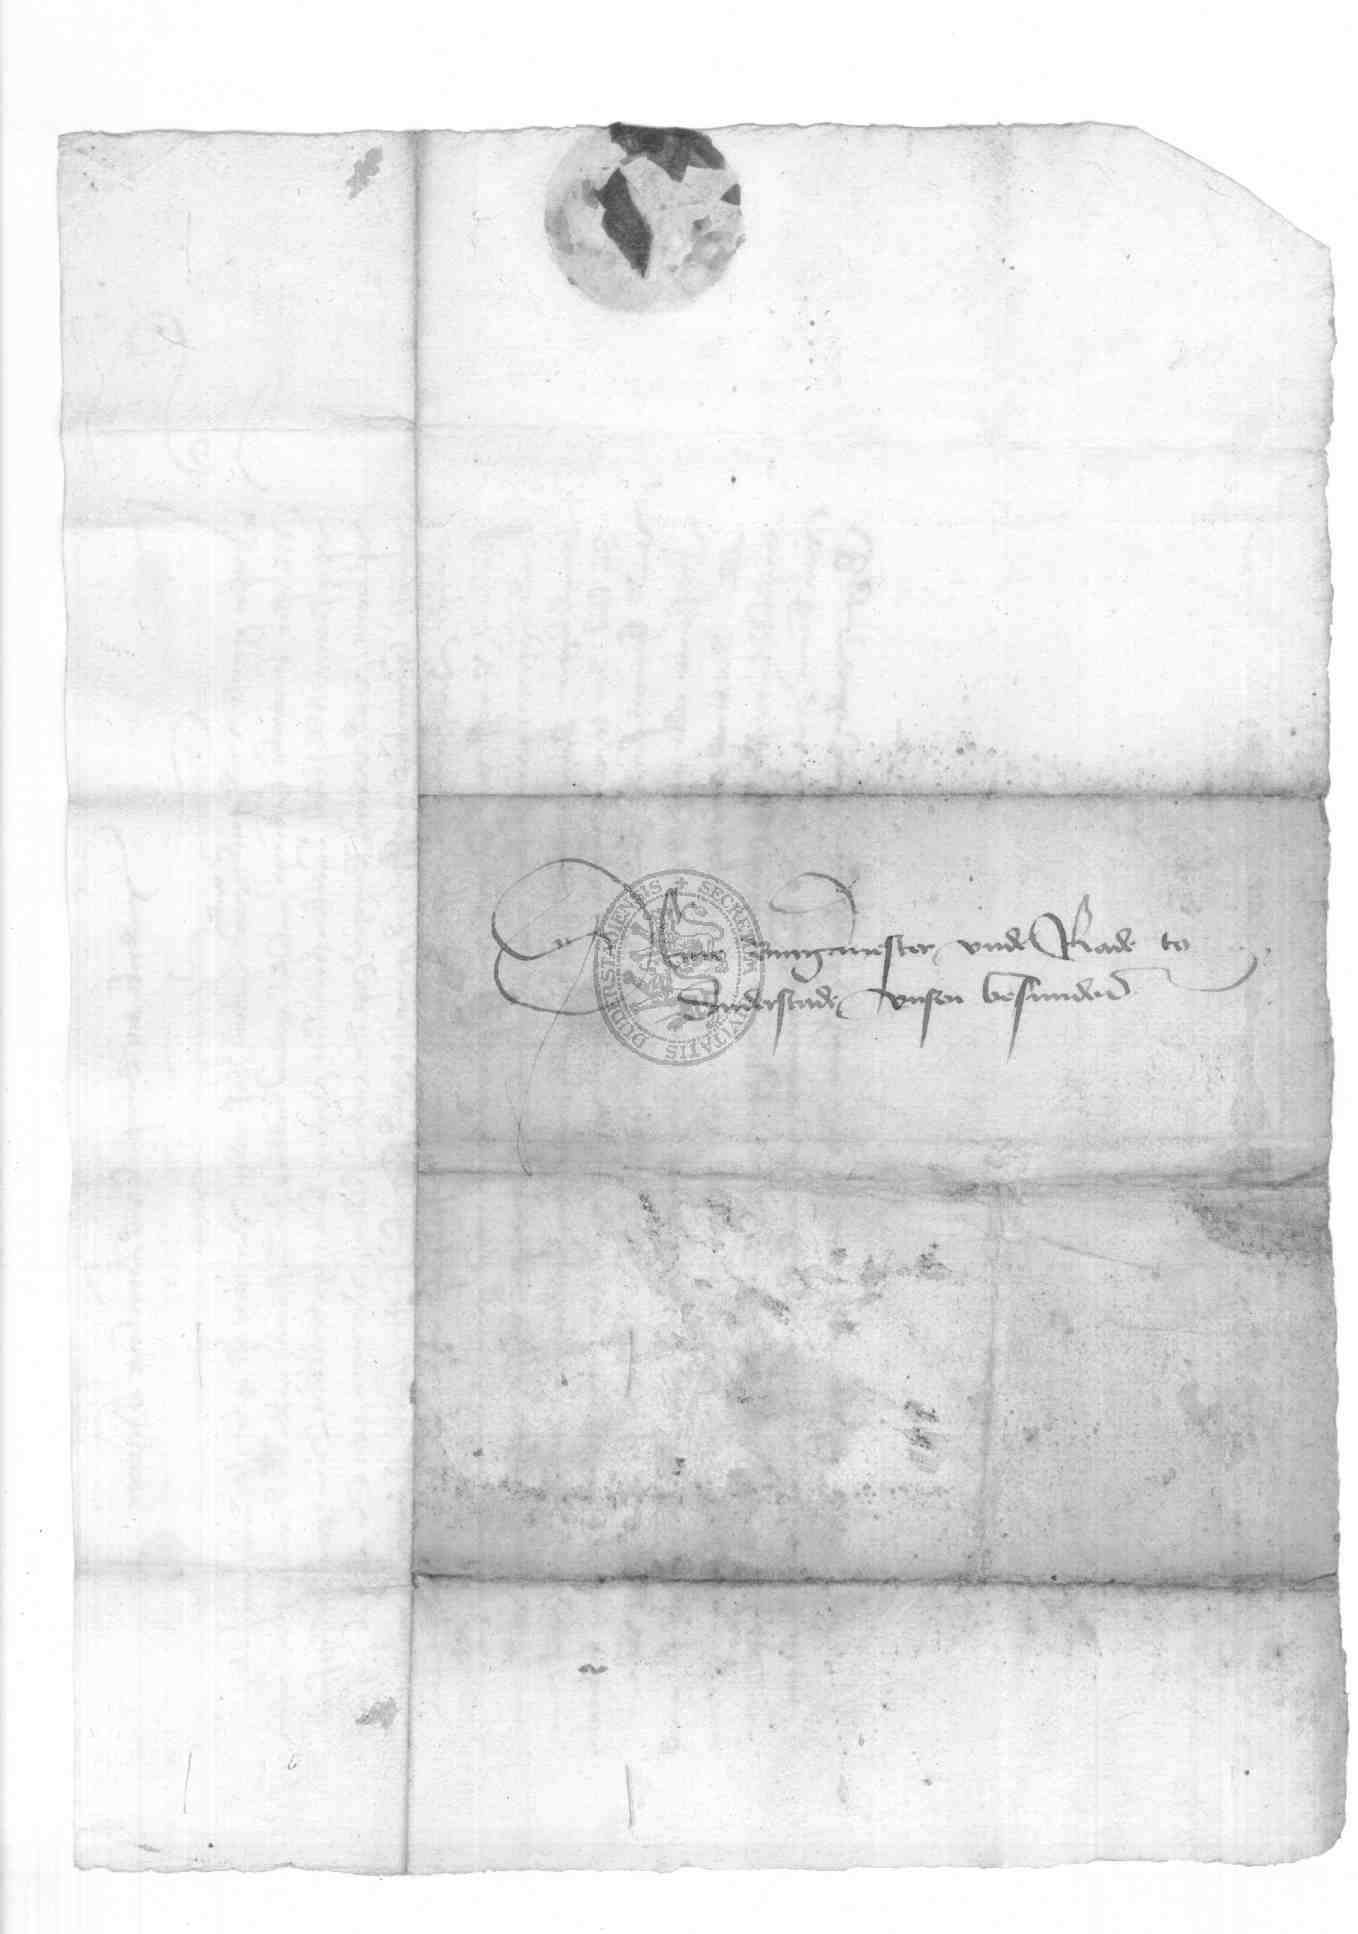 Den Burgmester vnde Rade to
Duderstade vnsen besunden
SECRETUM CIVITATIS DUDERSTADENSIS